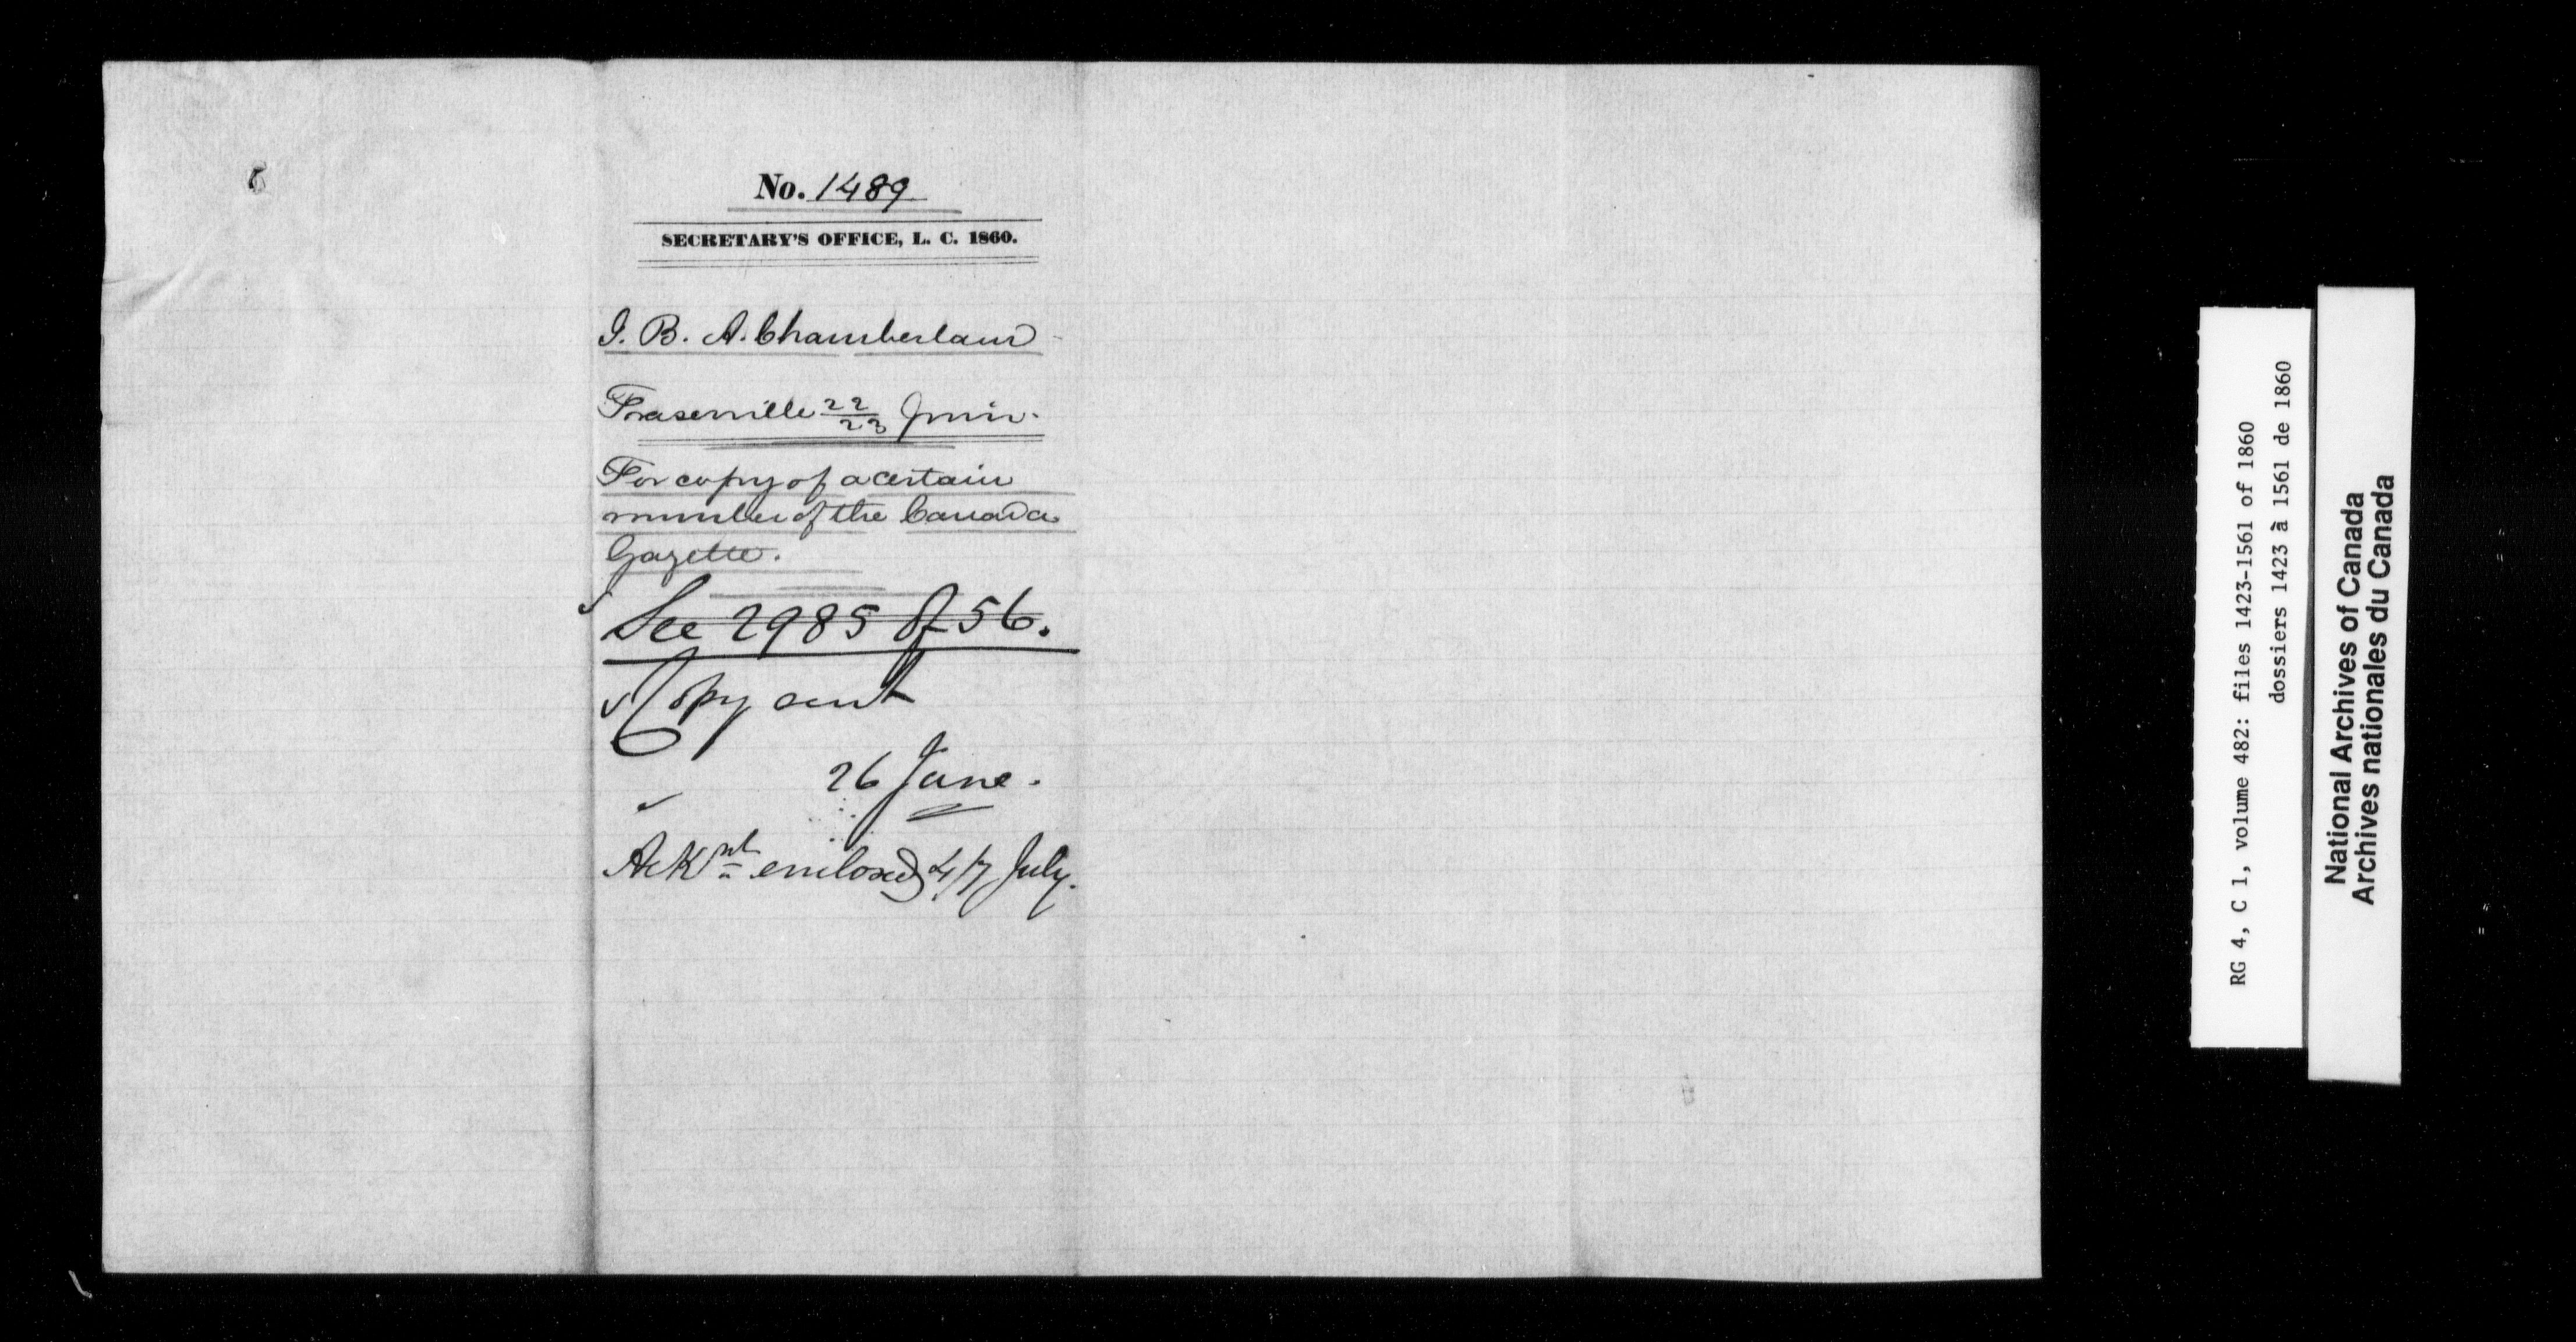 No. 1489
SECRETARY'S OFFICE, L. C. 1860.
J. B. A. Chamberland
Fraserville 22/23 Juin.
For copy of a certain
number of the Canada
Gazette.
See 2985 of 56.
Copy sent
26 June.
Acknt enclosed 4/7 July.
RG 4, C 1, volume 482: files 1423-1561 of 1860
dossiers 1423 à 1561 de 1860
National Archives of Canada
Archives nationales du Canada